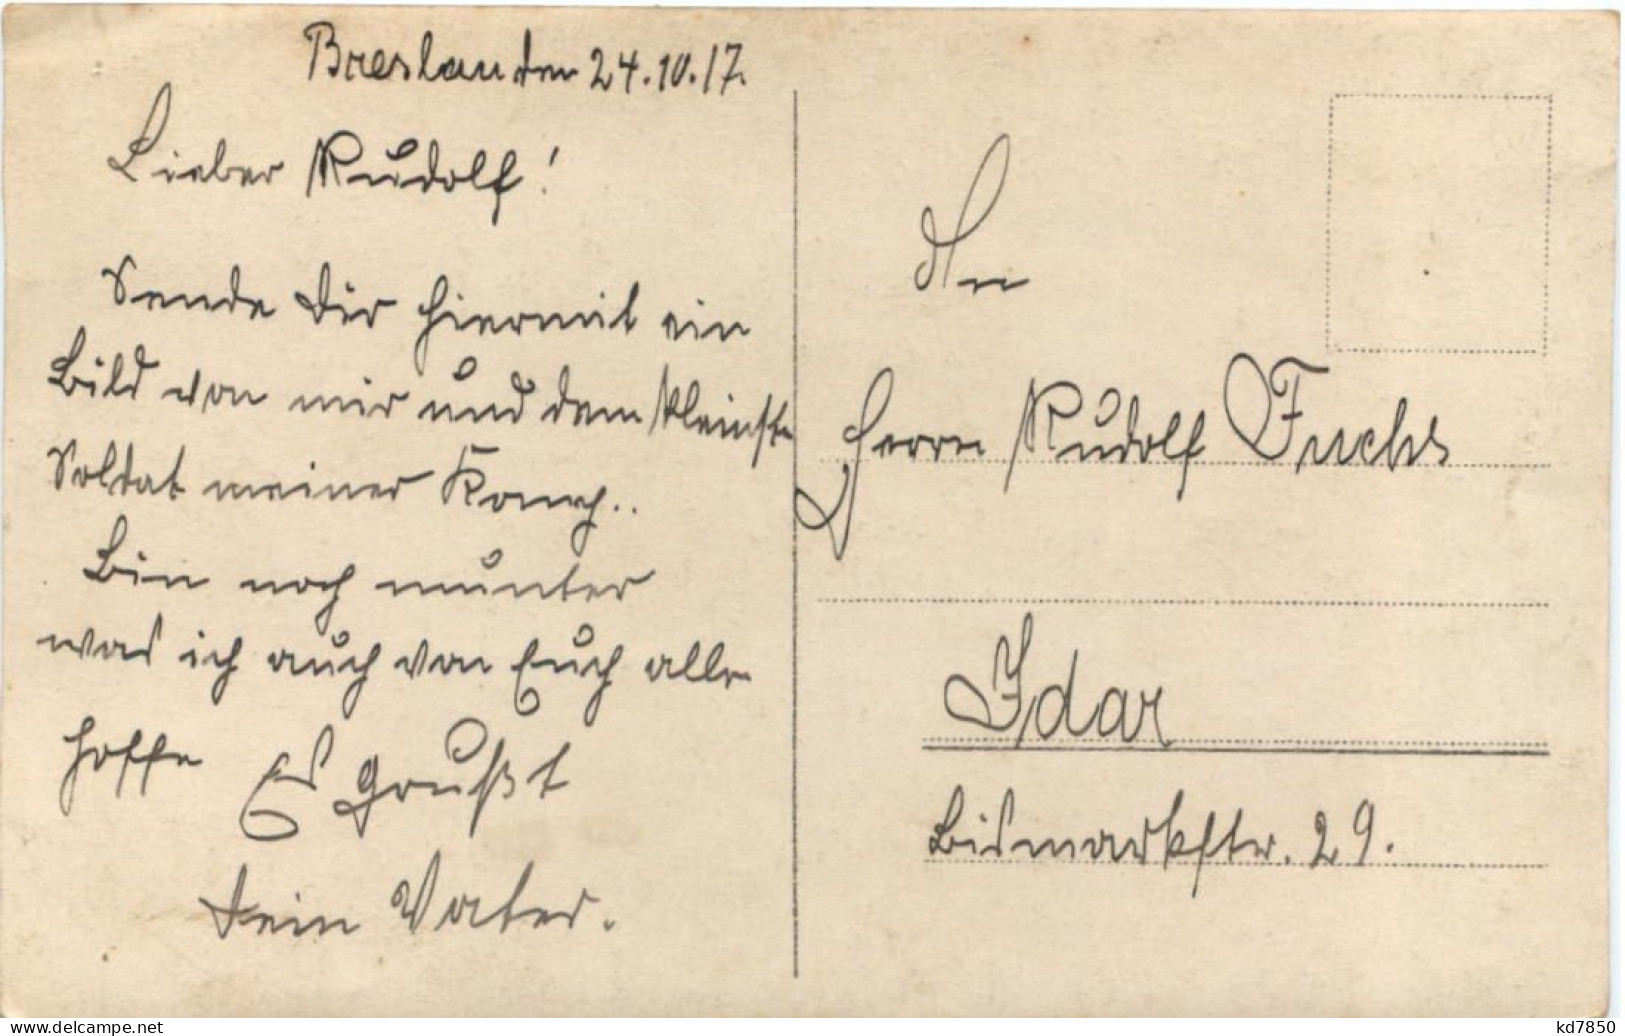 Breslau den 24.10.17.
Lieber Rudolf!
Sende Dir hiermit ein
Bild von mir und dem kleinste
Soldat meiner Komp..
Bin noch munter
was ich auch von Euch alle
hoffe Es Grüßt
Dein Vater.
An
Herrn Rudolf Fuchs
Idar
Bismarkstr. 29.
www.delcampe.net
kd7850